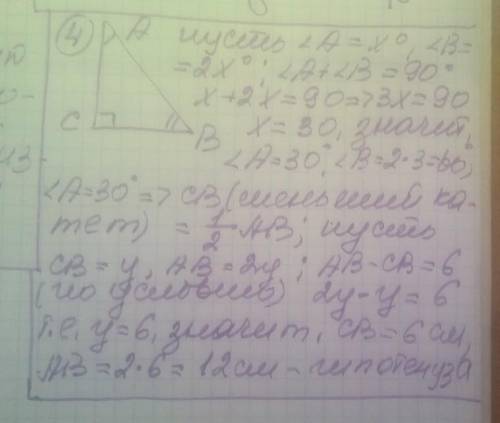 ④ A пусть ∠A = x°, ∠B =
= 2x°; ∠A + ∠B = 90°
x + 2x = 90 => 3x = 90
C B x = 30, значит,
∠A = 30°, ∠B = 2·3 = 60°,
∠A = 30° => CB (меньший ка-
тет) = 1/2 AB; пусть
CB = y, AB = 2y; AB - CB = 6
(по условию) 2y - y = 6
т.е. y = 6, значит, CB = 6 см,
AB = 2·6 = 12 см - гипотенуза